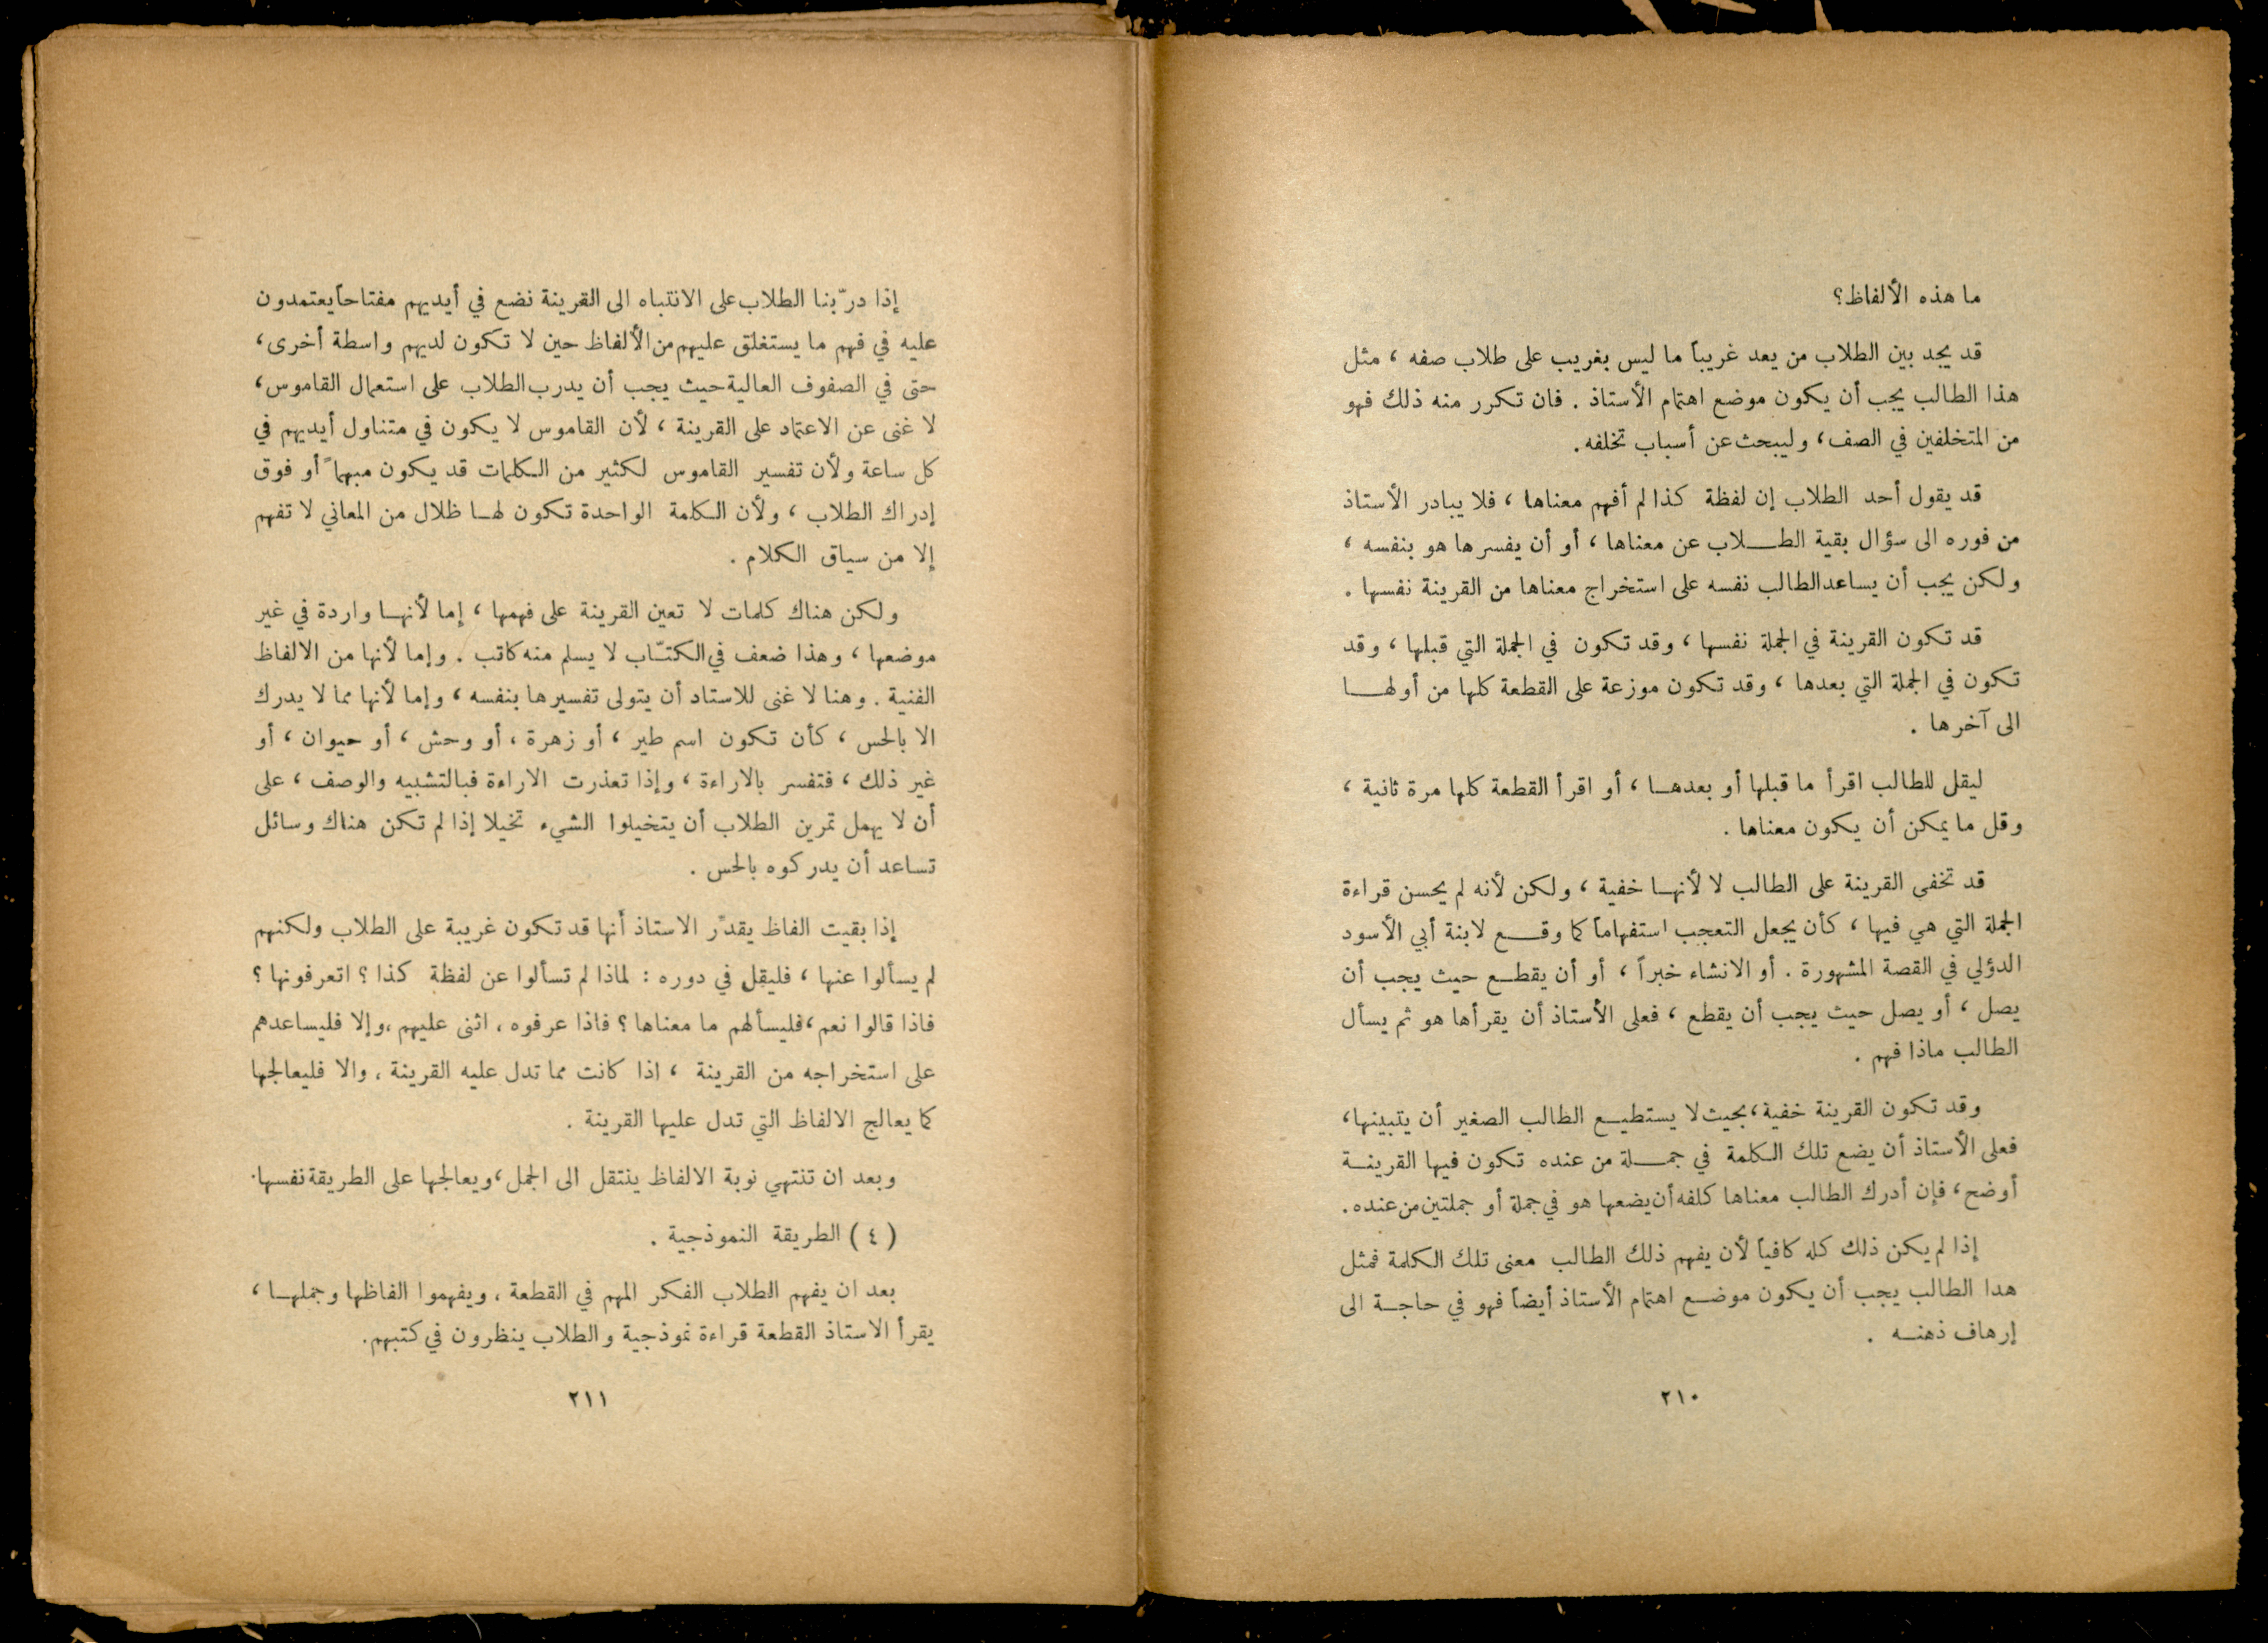 ما هذه الألفاظ؟
قد يجد بين الطلاب من يعد غريباً ما ليس بغريب على طلاب صفه ، مثل
هذا الطالب يجب أن يكون موضع اهتمام الأستاذ . فان تكرر منه ذلك فهو
من المتخلفين في الصف، وليبحث عن أسباب تخلفه.
قد يقول أحد الطلاب إن لفظة كذا لم أفهم معناها ، فلا يبادر الأستاذ
من فوره الى سؤال بقية الطــلاب عن معناها ، أو أن يفسرها هو بنفسه ،
ولكن يجب أن يساعد الطالب نفسه على استخراج معناها من القرينة نفسها .
قد تكون القرينة في الجملة نفسها ، وقد تكون في الجملة التي قبلها ، وقد
تكون في الجملة التي بعدها ، وقد تكون موزعة على القطعة كلها من أولهــا
الى آخرها .
ليقل للطالب اقرأ ما قبلها أو بعدهــا ، أو اقرأ القطعة كلها مرة ثانية ،
وقل ما يمكن أن يكون معناها .
قد تخفى القرينة على الطالب لا لأنهــا خفية ، ولكن لأنه لم يحسن قراءة
الجملة التي هي فيها ، كأن يجعل التعجب استفهاماً كما وقــع لابنة أبي الأسود
الدؤلي في القصة المشهورة . أو الانشاء خبراً ، أو أن يقطــع حيث يجب أن
يصل ، أو يصل حيث يجب أن يقطع ، فعلى الأستاذ أن يقرأها هو ثم يسأل
الطالب ماذا فهم .
وقد تكون القرينة خفية، بحيث لا يستطيــع الطالب الصغير أن يتبينها،
فعلى الأستاذ أن يضع تلك الكلمة في جمــلة من عنده تكون فيها القرينــة
أوضح، فإن أدرك الطالب معناها كلفه أن يضعها هو في جملة أو جملتين من عنده.
إذا لم يكن ذلك كله كافياً لأن يفهم ذلك الطالب معنى تلك الكلمة فمثل
هدا الطالب يجب أن يكون موضــع اهتمام الأستاذ أيضاً فهو في حاجــة الى
إرهاف ذهنــه .
٢١٠
إذا درّبنا الطلاب على الانتباه الى القرينة نضع في أيديهم مفتاحاً يعتمدون
عليه في فهم ما يستغلق عليهم من الألفاظ حين لا تكون لديهم واسطة أخرى،
حتى في الصفوف العالية حيث يجب أن يدرب الطلاب على استعمال القاموس،
لا غنى عن الاعتماد على القرينة ، لأن القاموس لا يكون في متناول أيديهم في
كل ساعة ولأن تفسير القاموس لكثير من الكلمات قد يكون مبهماً أو فوق
إدراك الطلاب ، ولأن الكلمة الواحدة تكون لهــا ظلال من المعاني لا تفهم
إلا من سياق الكلام .
ولكن هناك كلمات لا تعين القرينة على فهمها ، إما لأنهــا واردة في غير
موضعها ، وهذا ضعف في الكتّاب لا يسلم منه كاتب . وإما لأنها من الالفاظ
الفنية . وهنا لا غنى للاستاد أن يتولى تفسيرها بنفسه ، وإما لأنها مما لا يدرك
الا بالحس ، كأن تكون اسم طير ، أو زهرة ، أو وحش ، أو حيوان ، أو
غير ذلك ، فتفسر بالاراءة ، وإذا تعذرت الاراءة فبالتشبيه والوصف ، على
أن لا يهمل تمرين الطلاب أن يتخيلوا الشيء تخيلا إذا لم تكن هناك وسائل
تساعد أن يدركوه بالحس .
إذا بقيت الفاظ يقدّر الاستاذ أنها قد تكون غريبة على الطلاب ولكنهم
لم يسألوا عنها ، فليقل في دوره : لماذا لم تسألوا عن لفظة كذا ؟ اتعرفونها ؟
فاذا قالوا نعم، فليسألهم ما معناها ؟ فاذا عرفوه ، اثنى عليهم ، وإلا فليساعدهم
على استخراجه من القرينة ، اذا كانت مما تدل عليه القرينة ، والا فليعالجها
كما يعالج الالفاظ التي تدل عليها القرينة .
وبعد ان تنتهي نوبة الالفاظ ينتقل الى الجمل، ويعالجها على الطريقة نفسها.
( ٤ ) الطريقة النموذجية .
بعد ان يفهم الطلاب الفكر المهم في القطعة ، ويفهموا الفاظها وجملهــا ،
يقرأ الاستاذ القطعة قراءة نموذجية والطلاب ينظرون في كتبهم.
٢١١